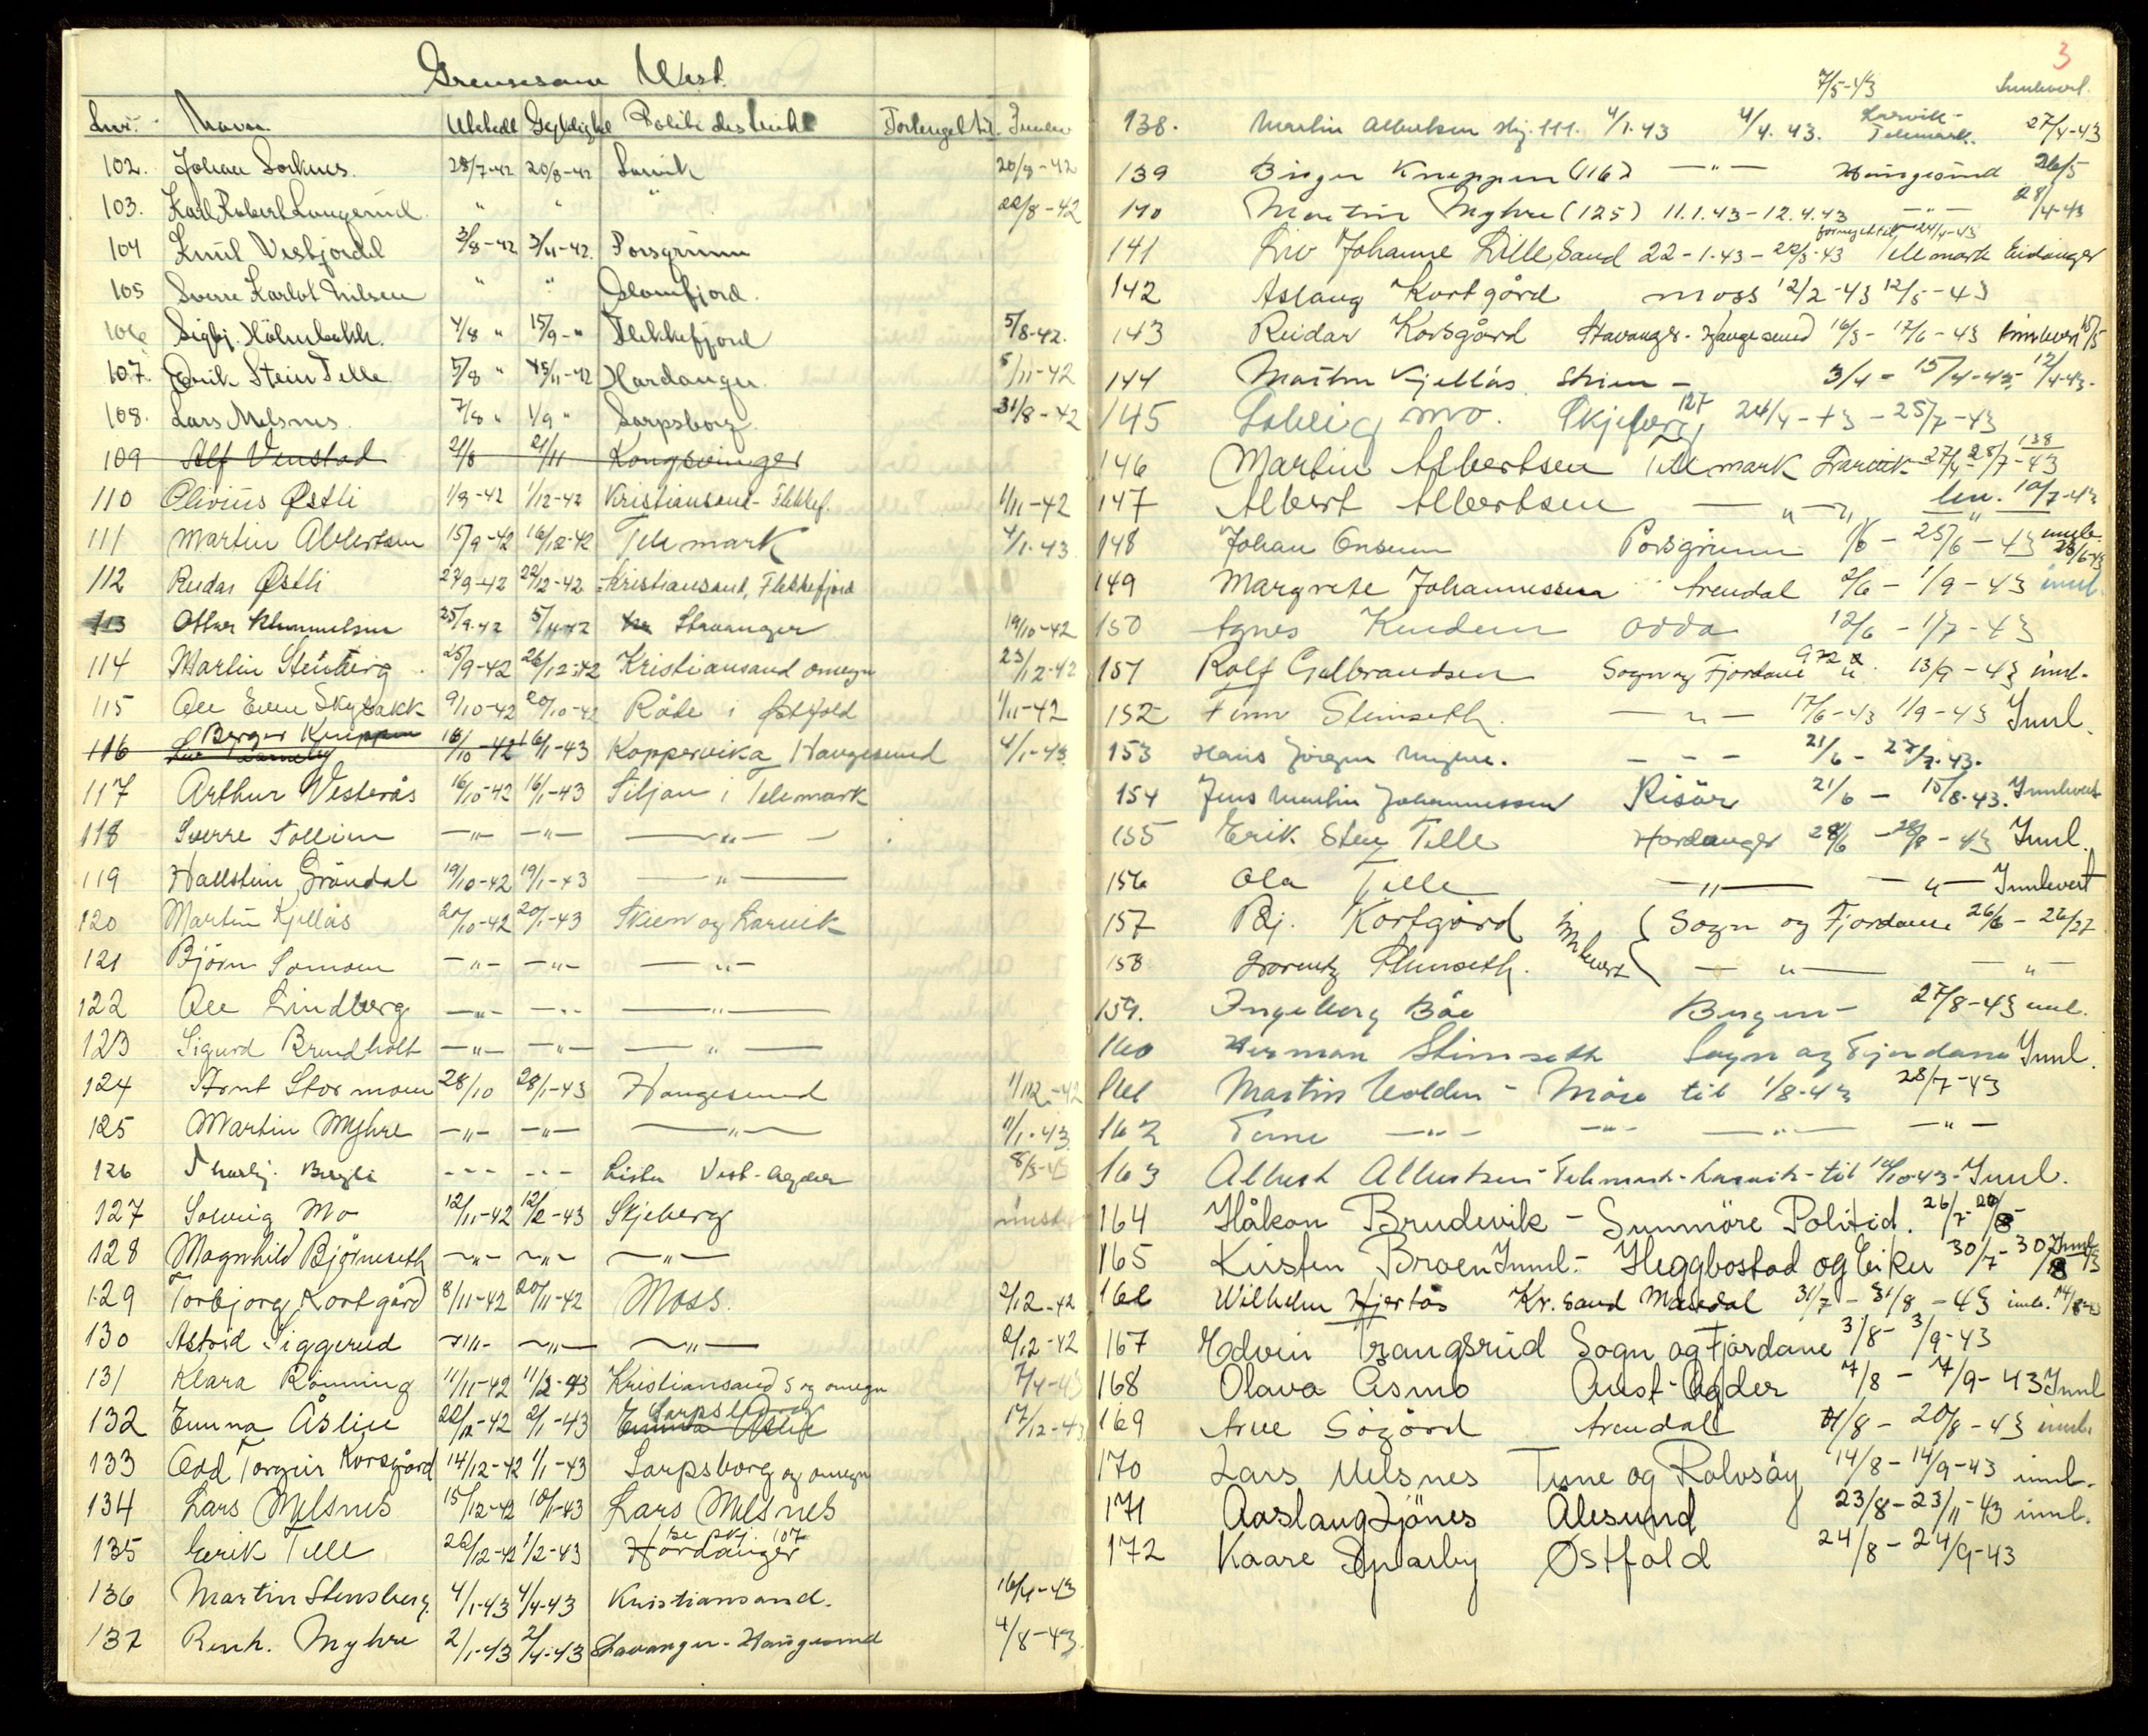 Grensesone Vest.
Lnr. Navn. Utstedt Gyldighet Politidistrikt Forlenget til. Innlev
102. Johan Sorknes. 28/7-42 20/8-42 Larvik 20/8-42
103. Karl Robert Langerud. " " " 22/8-42
104 Knut Vesfjordd 3/8-42 3/11-42. Porsgrunn
105 Sverre Karlot Nilsen " " Glomfjord.
106 Sigbj. Hölmebakk. 4/8 " 15/9-" Flekkefjord 5/8-42.
107. Erik Stein Telle 5/8 " 15/11-42 Hardanger. 5/11-42
108. Lars Melsnes. 7/8 " 1/9 " Sarpsborg. 31/8-42
109 Alf Venstad 21/8 21/11 Kongsvinger
110 Olivius Østli 1/9-42 1/12-42 Kristiansand-Flekkef. 1/11-42
111 Martin Albertsen 15/9-42 16/12-42 Telemark 4/1-43
112 Reidar Østli 22/9-42 22/12-42 Kristiansand, Flekkefjord
113 Ottar Klemmetsen 25/9-42 5/11-42 Stavanger 19/10-42
114 Martin Stenberg 25/9-42 26/12-42 Kristiansand omegn 23/12-42
115 Ole Even Skybakk 9/10-42 20/10-42 Råde i Østfold 1/11-42
116 Berger Kneppen 16/10-42 16/1-43 Koppervika Haugesund 4/1-43
117 Arthur Vesterås 16/10-42 16/1-43 Siljan i Telemark
118 Sverre Tollien -"- -"- -"-
119 Hallstein Gröndal 19/10-42 19/1-43 -"-
120 Martin Kjellås 20/10-42 20/1-43 Skien og Larvik
121 Björn Lomoen -"- -"- -"-
122 Ole Lindberg -"- -"- -"-
123 Sigurd Brendholt -"- -"- -"-
124 Arnt Stormoen 28/10 28/1-43 Haugesund 1/12-42
125 Martin Myhre -"- -"- -"- 11/1-43
126 Thorbj. Bergli --- --- Lista Vest-Agder 8/3-43
127 Solveig Mo 12/11-42 12/2-43 Skjeberg
128 Magnhild Bjørneseth -"- -"- -"-
129 Torbjorg Kortgård 8/11-42 20/11-42 Moss. 2/12-42
130 Astrid Siggerud -"- -"- -"- 2/12-42
131 Klara Rönning 11/11-42 11/2-43 Kristiansand S og omegn 7/4-43
132 Emma Åslie 22/12-42 2/1-43 Sarpsborg 17/12-43
133 Odd Torgeir Korsgård 14/12-42 1/1-43 Sarpsborg og omegn
134 Lars Melsnes 15/12-42 10/1-43 Lars Melsnes
135 Erik Telle 22/12-42 1/2-43 se skj. 107 Hardanger
136 Martin Stensberg. 4/1-43 4/4-43 Kristiansand. 16/4-43
137 Reinh. Myhre 2/1-43 2/4-43 Stavanger-Haugesund 4/8-43
3
7/5-43 Innlevert.
138. Martin Albertsen skj. 111. 4/1.43 4/4.43. Larvik-Telemark. 27/4-43
139 Birger Kneppen (116) -"- Haugesund 26/5
140 Martin Myhre (125) 11.1.43-12.4.43 -"- 28/4-43
fornyet til 24/4-43
141 Liv Johanne Lillesand 22-1-43-22/3-43 Telemark Eidanger
142 Aslaug Kortgård Moss 12/2-43 12/5-43
143 Reidar Korsgård Stavanger-Haugesund 16/3-17/6-43 innlevert 15/5
144 Martin Kjellås Skien- 3/4-15/4-43 12/4-43-
145 Solveig Mo. Skjeberg 127 24/4-43-25/7-43
146 Martin Albertsen Telemark Larvik 27/4-28/7-43 138
147 Albert Albertsen -"- -"- lev. 10/7-43
148 Johan Enseun Porsgrunn 1/6-25/6-43 innlev. 25/6-43
149 Margrete Johannessen Arendal 2/6-1/9-43 innl.
150 Agnes Kvidem Odda 12/6-1/7-43
151 Rolf Gulbrandsen Sogn og Fjordane 13/9-43 innl.
152 Finn Steinseth. -"- 17/6-43 1/9-43 Innl.
153 Hans Jörgen Myhre. - - - 21/6-27/7-43.
154 Jens Martin Johannessen Risör 21/6-15/8-43. Innlevert
155 Erik Sten Telle Hardanger 28/6-28/8-43 Innl.
156 Ola Telle -"- -"- Innlevert
157 Bj. Kortgård innlevert { Sogn og Fjordane 26/6-26/27
158 Lorentz Steinseth. -"- -"-
159. Ingeborg Båe Bergen- 27/8-43 innl.
160 Herman Steinseth Sogn og Fjordane Innl.
161 Martin Volden - Möre til 1/8-43 28/7-43
162 Tone -"- -"- -"- -"-
163 Albert Albertsen-Telemark-Larvik-til 10/10-43-Innl.
164 Håkon Brudevik - Sunmöre Politid. 26/7-20/8-
165 Kirsten Broen Innl.- Heggbostad og Eiken 30/7-30/8 43 Innl.
166 Wilhelm Hjertås Kr.sand Mandal 31/7-31/8-43 innl. 14/8-43
167 Edvin Trangsrud Sogn og Fjordane 3/8-3/9-43
168 Olava Åsmo Aust-Agder 7/8-7/9-43 Innl
169 Arne Sögörd Arendal 11/8-20/8-43 innl.
170 Lars Melsnes Tune og Rolvsöy 14/8-14/9-43 innl.
171 Aaslaug Ljönes Ålesund 23/8-23/11-43 innl.
172 Kaare Sparby Østfold 24/8-24/9-43